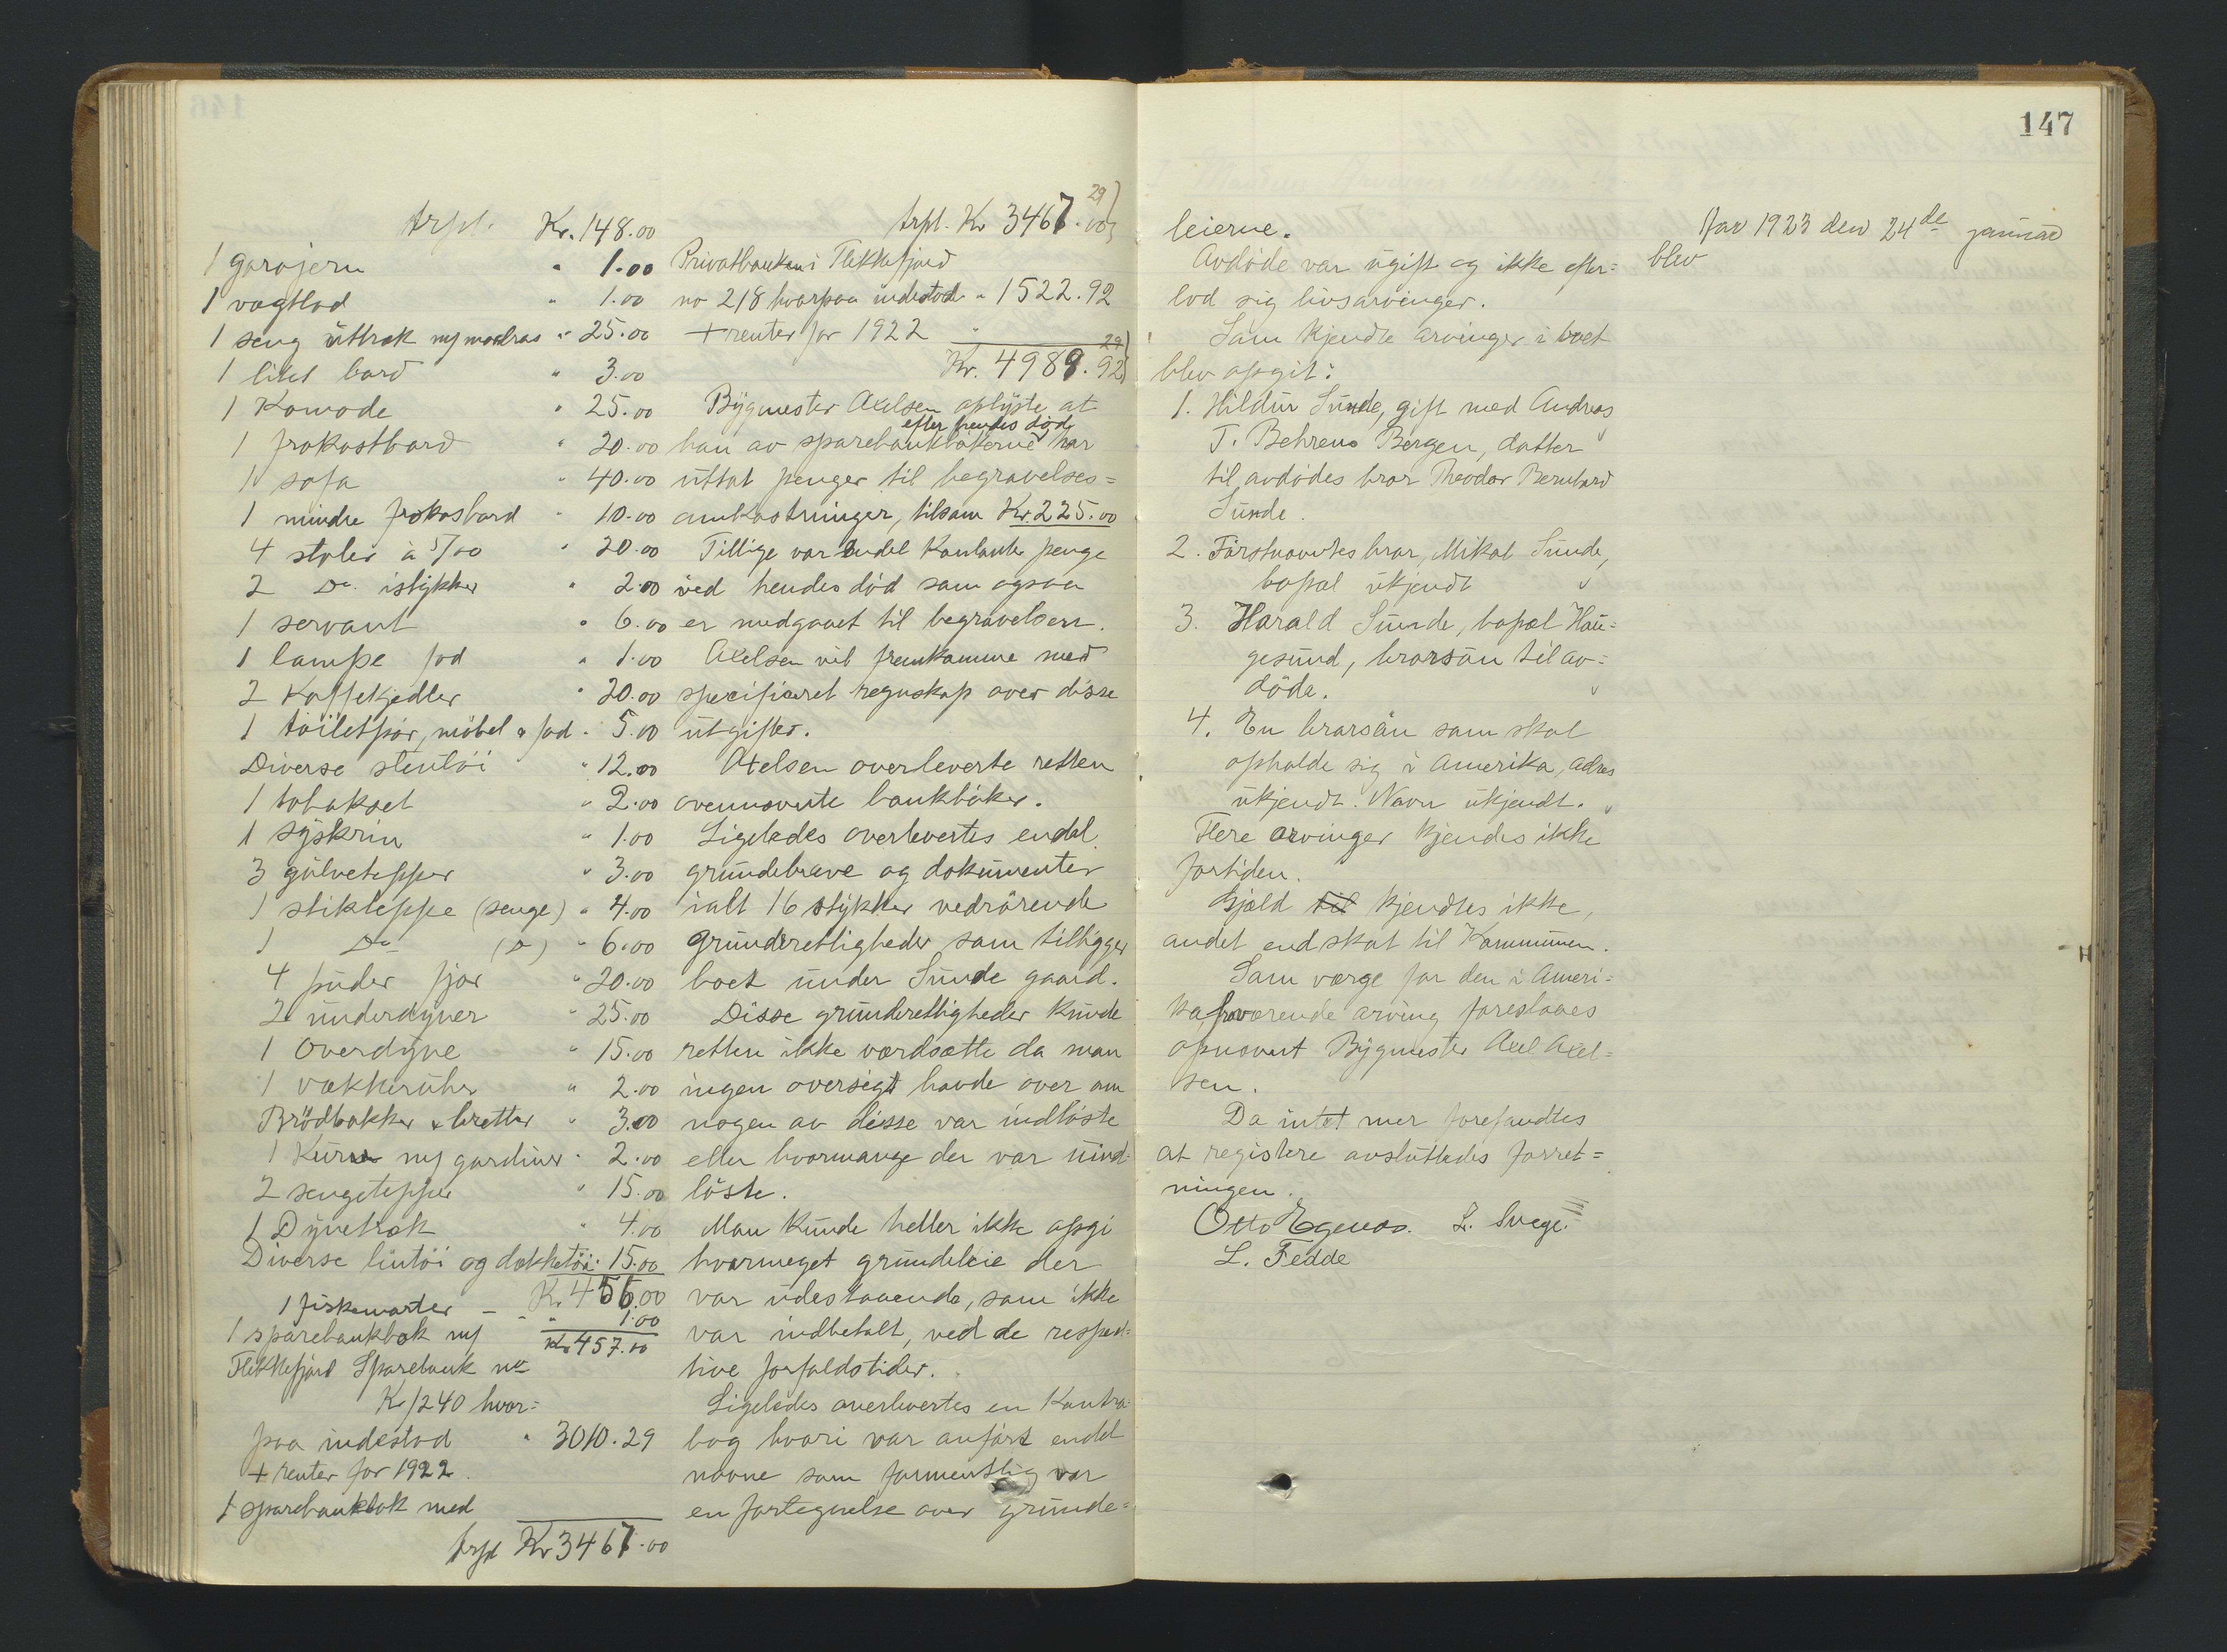 trpt. Kr. 148.00
1 garojern " 1.00
1 vagtlod " 1.00
1 seng uttræk m/ madras " 25.00
1 litet bord " 3.00
1 Komode " 25.00
1 frokostbord " 20.00
1 sofa " 40.00
1 mindre frokosbord " 10.00
4 stoler à 5/00 " 20.00
2 Do. istykker " 2.00
1 servant " 6.00
1 lampe fod " 1.00
2 Kaffekjedler " 20.00
1 toiletspor, möbel & fad " 5.00
Diverse stentöi " 12.00
1 tobakset " 2.00
1 syskrin " 1.00
3 gulvetepper " 3.00
1 stikteppe (senge) " 4.00
1 Do (Do) " 6.00
4 puder fjær " 20.00
2 underdyner " 25.00
1 Overdyne " 15.00
1 vækkeruhr " 2.00
Brödbakker & bretter " 3.00
1 Kurv m/ gardiner " 2.00
2 sengetepper " 15.00
1 Dynetræk " 4.00
Diverse lintöi og dækketöi " 15.00
Kr. 456.00
1 fiskevarter - " 1.00
Kr 457.00
1 sparebankbok m/
Flekkefjord Sparebank no
K/1240 hvor=
paa indestod " 3010.29
+ renter for 1922.
1 sparebankbok med
trpt Kr 3467.00
trpt. Kr 3467.00 29)
Privatbanken i Flekkefjord
no 218 hvorpaa indestod " 1522.92
+ renter for 1922 "
Kr. 4989.92 29)
Bygmester Axelsen oplyste at
efter hendes död
han av sparebankbökerne har
uttat penger til begravelses=
omkostninger, tilsam Kr. 225.00
Tillige var endel Kontante penge
ved hendes död som ogsaa
er medgaaet til begravelsen.
Axelsen vil fremkomme med
specificeret regnskap over disse
utgifter.
Axelsen overleverte retten
ovennævnte bankböker.
Ligeledes overlevertes endel
grundebreve og dokumenter
ialt 16 stykker vedrörende
grundrettigheder som tilligger
boet under Sunde gaard.
Disse grundrettigheder kunde
retten ikke værdsætte da man
ingen oversigt havde over om
nogen av disse var indlöste
eller hvormange der var uind=
löste.
Man Kunde heller ikke opgi
hvormeget grundeleie der
var udestaaende, som ikke
var indbetalt, ved de respek=
tive forfaldstider.
Ligeledes overlevertes en Kontra=
bog hvori var anfört endel
navne som formentlig var
en fortegnelse over grunde=
147
leierne.
Avdöde var ugift og ikke efter=
lod sig livsarvinger.
Som Kjendte arvinger i boet
blev opgit:
1. Hildur Sunde, gift med Andreas
T. Behrens Bergen, datter
til avdödes bror Theodor Bernhard
Sunde.
2. Förstnævntes bror, Mikal Sunde,
bopæl ukjendt
3. Harald Sunde, bopæl Hau=
gesund, brorsön til av=
döde.
4. En brorsön som skal
opholde sig i Amerika, adres
ukjendt. Navn ukjendt.
Flere arvinger kjendes ikke
fortiden.
Gjæld til kjendtes ikke,
andet end skat til Kommunen.
Som værge for den i Ameri=
ka fraværende arving foreslaaes
opnævnt Bygmester Axel Axel=
sen.
Da intet mer forefandtes
at registere avsluttedes forret=
ningen.
Otto Egenæs. L. Svege.
L. Fedde
Aar 1923 den 24de januar
blev